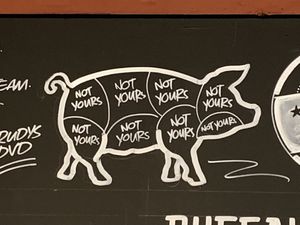 EAM.
NOT
YOURS
NOT
YOURS
NOT
YOURS
NOT
YOURS
NOT
YOURS
NOT
YOURS
NOT
YOURS
NOT YOURS
RUDYS
DVD